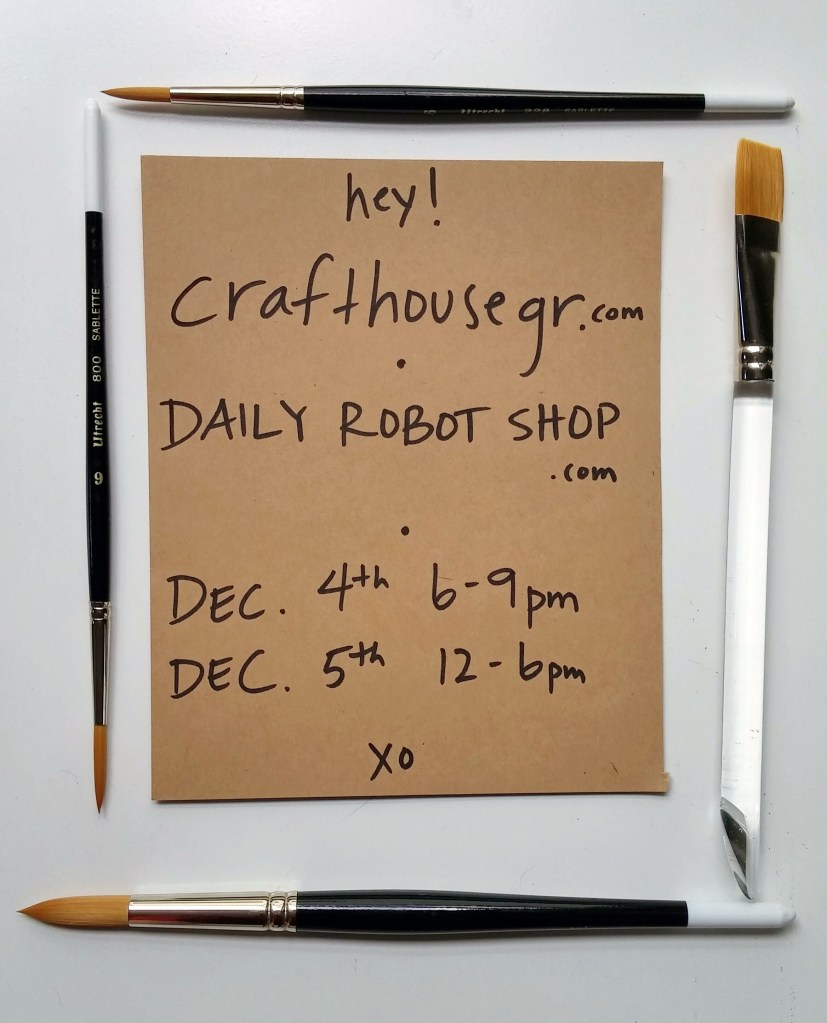 utrecht SABLETTE
hey!
crafthousegr.com
DAILY ROBOT SHOP
.com
DEC. 4th 6-9pm
DEC. 5th 12-6pm
xo
9 utrecht 800 SABLETTE